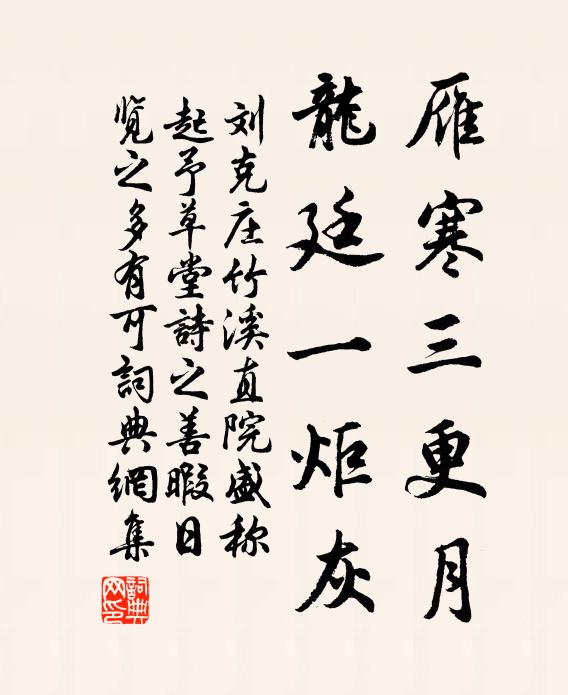 雁寒三更月
龍廷一炬灰
刘克庄竹溪直院盛称
起予草堂詩之善暇日
览之多有可詞典網集
詞典网印